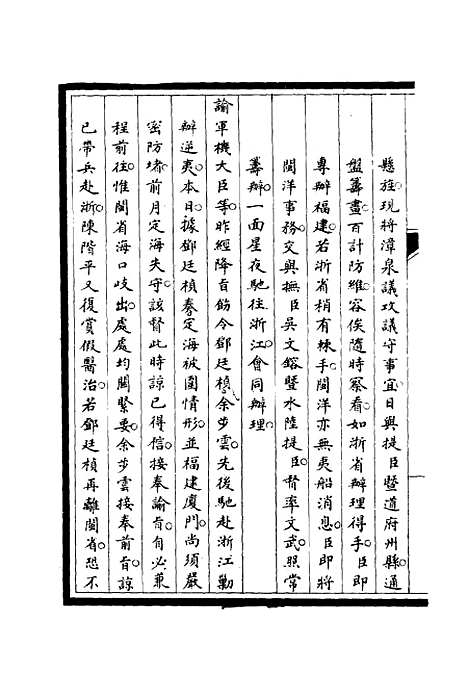 懸旌。現將漳泉議攻議守事宜。日與提臣暨道府州縣。通
盤籌畫。百計防維。容俟隨時察看。如浙省辦理得手。臣即
專辦福建。若浙省稍有棘手。閩洋亦無夷船消息。臣即將
閩洋事務。交與撫臣吳文鎔暨水陸提臣。督率文武。照常
籌辦。一面星夜馳往浙江。會同辦理
諭軍機大臣等。昨經降旨飭令鄧廷楨。余步雲。先後馳赴浙江。勦
辦逆夷。本日據鄧廷楨奏定海被圍情形。並福建廈門。尚須嚴
密防堵。前月定海失守。該督此時諒已得信。接奉諭旨。自必兼
程前往。惟閩省海口歧出。處處均關緊要。余步雲接奉前旨。諒
已帶兵赴浙。陳階平又復賞假醫治。若鄧廷楨再離閩省。恐不